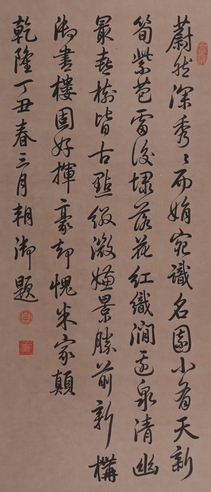 蔚然深秀〻而娟宛識名園小有天新
筍紫苞雷後落花紅織澗邊泉清幽
最喜樹皆古點綴微嫌景勝前新構
御書樓固好揮豪却愧米家顛
乾隆丁丑春三月御題